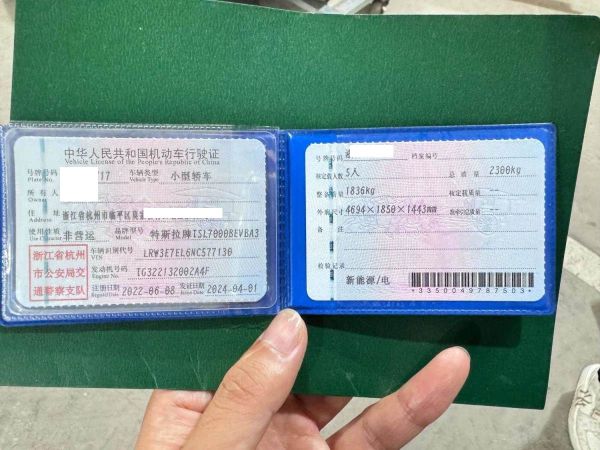 中华人民共和国机动车行驶证
Vehicle License of the People's Republic of China
号牌号码 17 车辆类型 小型轿车
Plate No. Vehicle Type
所有人
Owner
住址 浙江省杭州市临平区
Address
使用性质 非营运 品牌型号 特斯拉牌TSL7000BEVBA3
Use Character Model
浙江省杭州
市公安局交
通警察支队
车辆识别代号 LRW3E7EL6NC577130
VIN
发动机号码 TG322132002A4F
Engine No.
注册日期 2022-06-08 发证日期 2024-04-01
Register Date Issue Date
号牌号码 档案编号
核定载人数 5人 总质量 2300kg
整备质量 1836kg 核定载质量 --
外廓尺寸 4694×1850×1443mm 准牵引总质量 --
备注
检验记录
新能源/电
*3350049787503*